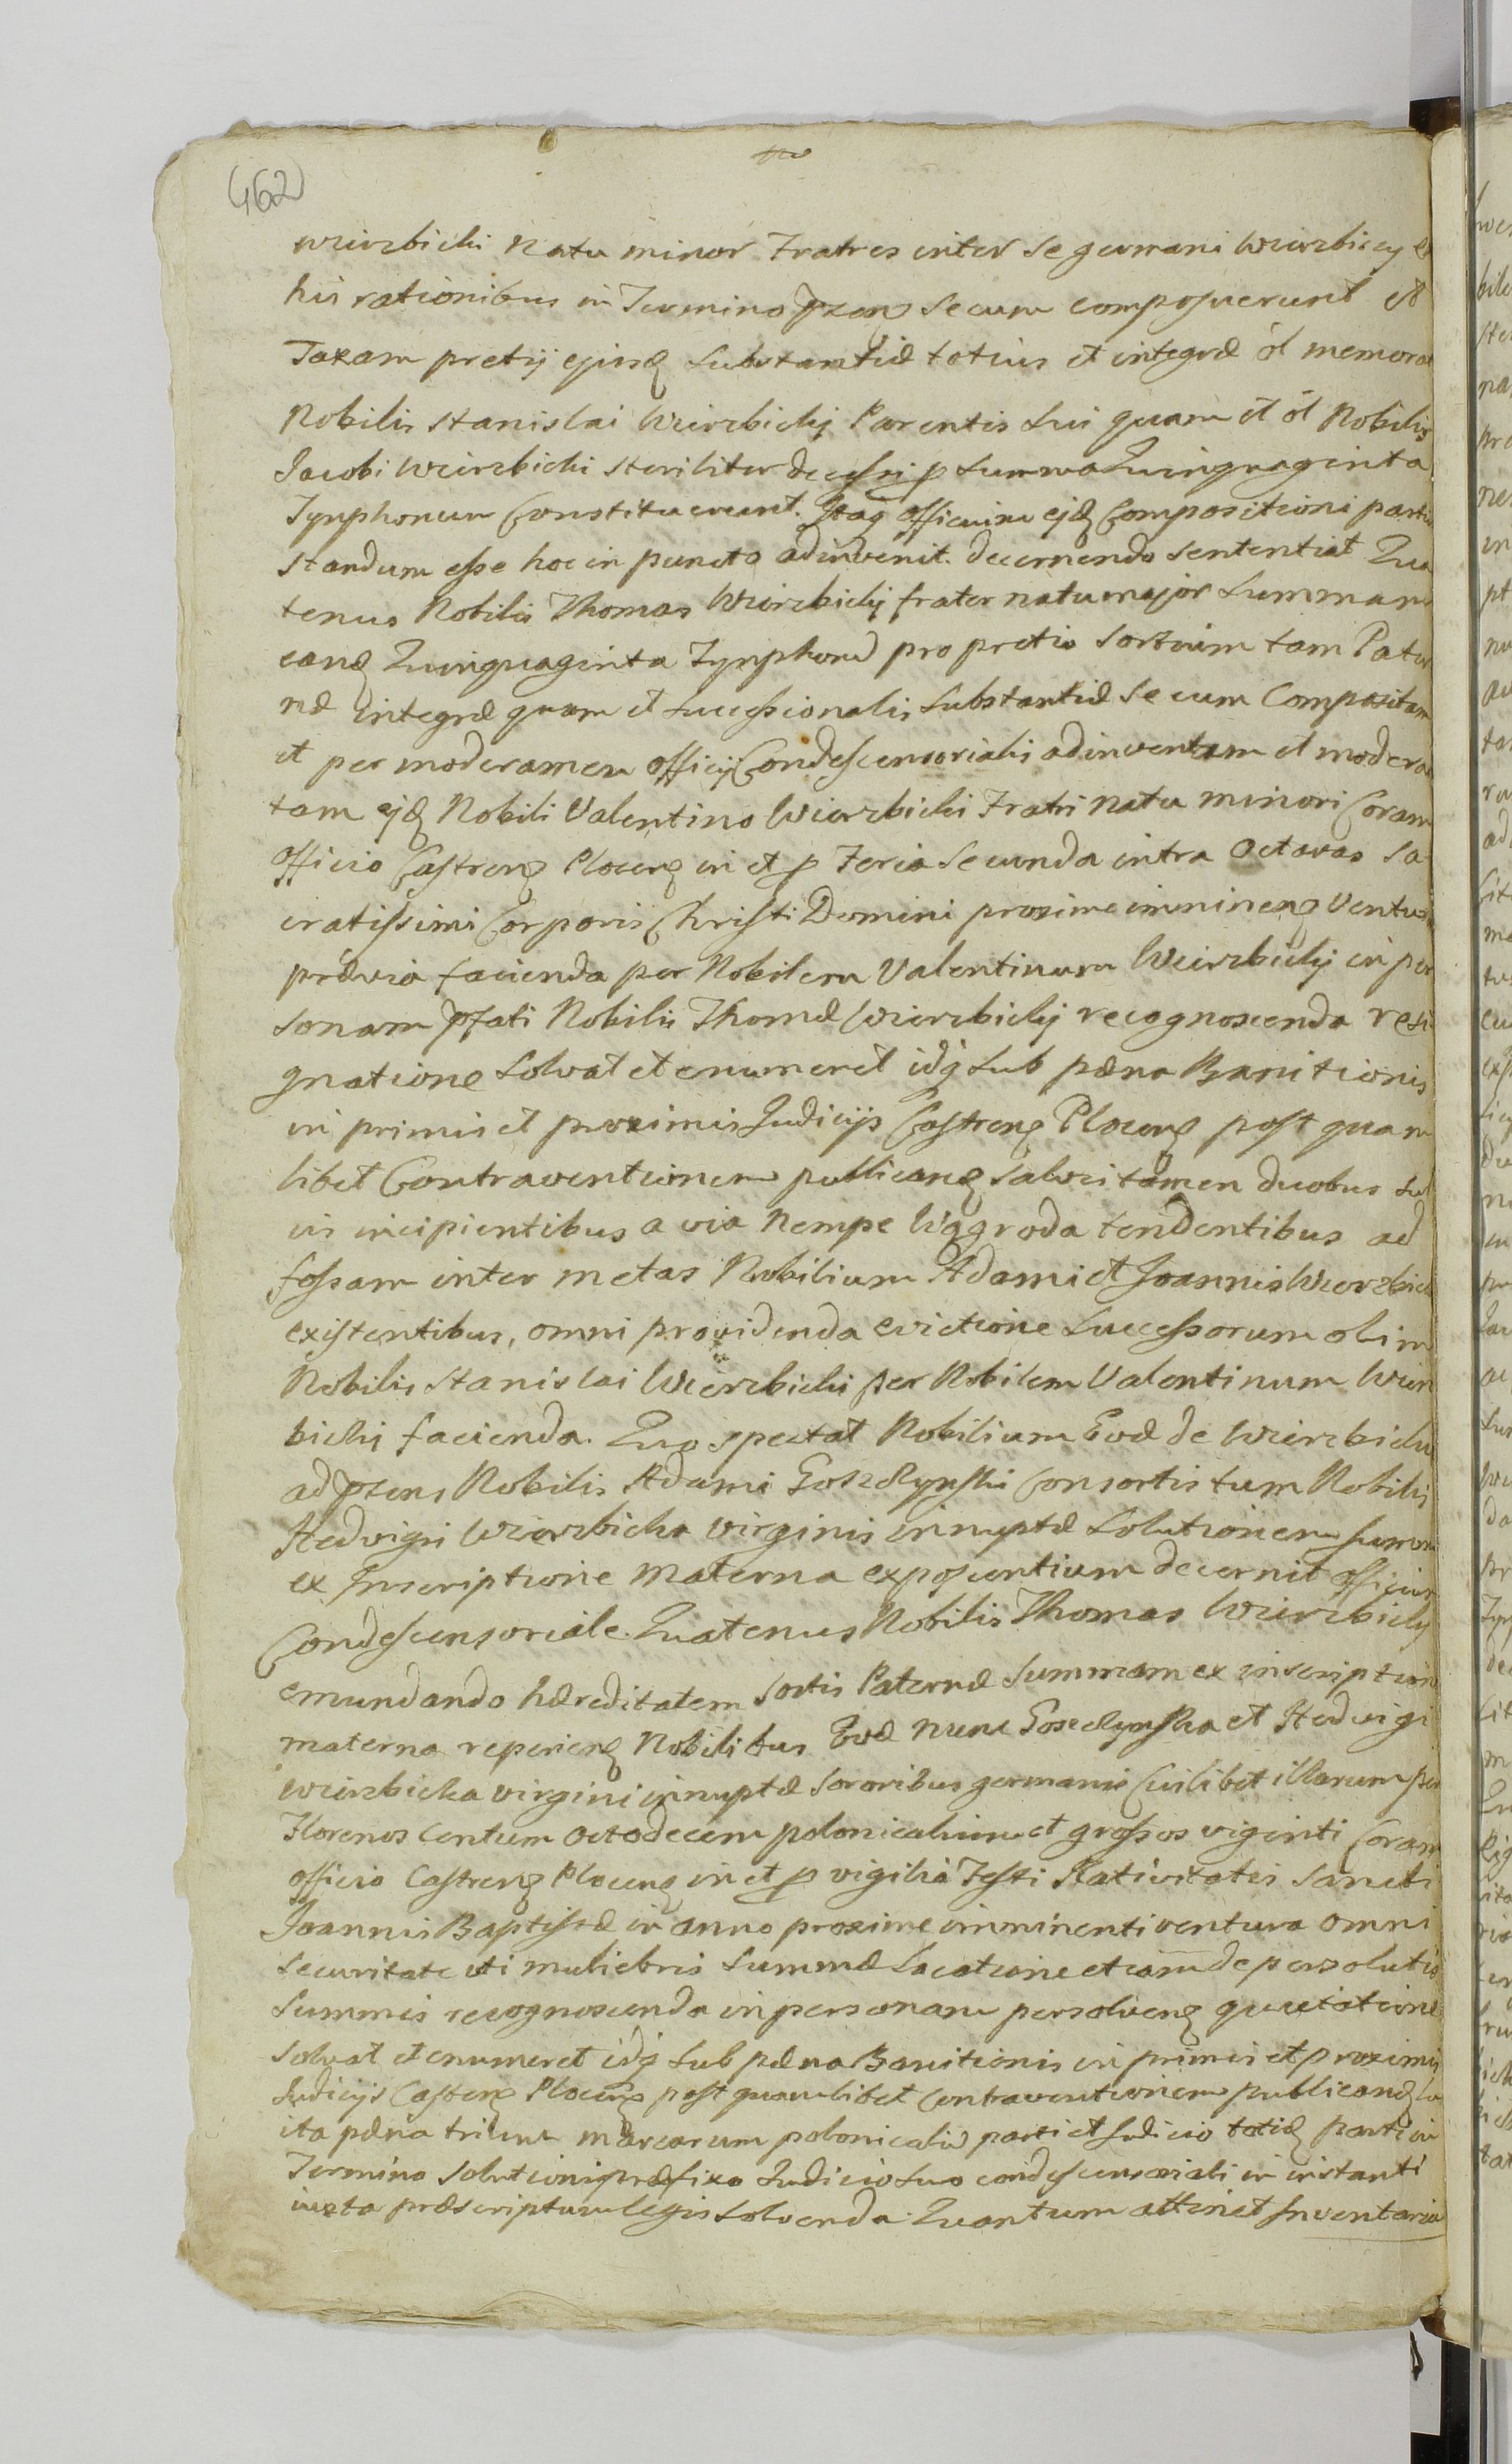 462
Wierzbicki Natu minor Fratres inter se germani Wierzbiccy ex
his rationibus in Termino pzenꝫ secum composuerunt et
Taxam pretij ejusꝫ substantiæ totius et integræ ol memorat
Nobilis Stanislai Wierzbicki Parentis sui quam et ol Nobilis
Jacobi Wierzbicki steriliter decessi p summa Quinquaginta
Tynphonum Constituerunt. Itaq Officium ejꝫ Compositioni partiu
standum esse hoc in puncto adinvenit. decernendo sententiat Qua
tenus Nobilis Thomas Wierzbicki frater natu major summam
eanꝫ Quinquaginta Tynphonu pro pretio sortium tam Pater
næ integræ quam et successionalis substantiæ secum Compositam
et per moderamen officij Condescensorialis adinventam et modera
tam ejꝫ Nobili Valentino Wierzbicki Fratri natu minori Coram
Officio Castrenꝫ Plocenꝫ in et p Feria secunda intra Octavas Sa
cratissimi Corporis Christi Domini proxime imminenꝫ Ventur
prævia facienda per Nobilem Valentinum Wierzbicki in per
sonam pfati Nobilis Thomæ Wierzbicki recognoscenda resi
gnatione solvat et enumeret idq sub pæna Banitionis
in primis et proximis Judicijs Castrenꝫ Plocenꝫ post quam
libet Contraventionem publicanꝫ salvis tamen duobus sul
is incipientibus a via nempe Wygroda tendentibus ad
fossam inter metas Nobilium Adami et Joannis Wierzbick
existentibus, omni providenda evictione Successorum olim
Nobilis Stanislai Wierzbicki per Nobilem Valentinum Wierz
bicki facienda. Quo spectat Nobilium Evæ de Wierzbickie
ad pzens Nobilis Adami Goszczynski Consortis tum Nobilis
Hedvigis Wierzbicka virginis innuptæ solutionem summ
ex Inscriptione Materna exposcentium decernit officium
Condescensoriale. Quatenus Nobilis Thomas Wierzbicki
emundando hæreditatem sortis Paternæ summam ex inscription
materna reperienꝫ Nobilibus Evæ nunc Goszczynska et Hedvigi
Wierzbicka virgini innuptæ sororibus germanis Cuilibet illarum per
Florenos Centum Octodecem polonicalium et grossos viginti Coram
officio Castrenꝫ Plocenꝫ in et p vigilia Festi Nativitatis Sancti
Joannis Baptistæ in anno proxime imminenti ventura omni
securitate uti muliebris summæ Locatione et eam de persolutis
summis recognoscenda in personam persolvenꝫ quietatione
solvat et enumeret idq sub pæna Banitionis in primis et proximis
Judicijs Castrenꝫ Plocenꝫ post quamlibet contraventionem publicanꝫ lu
ita pæna trium marcarum polonicaliu parti et Judicio totiꝫ parti in
Termino solutionis præfixo Judicio suo condescensoriali in instanti
iuxta præscriptum legis solvenda. Quantum attinet Inventaria